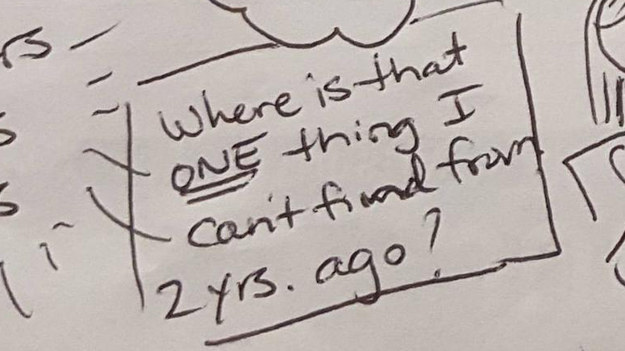 rs
Where is that
ONE thing I
can't find from
2 yrs. ago?